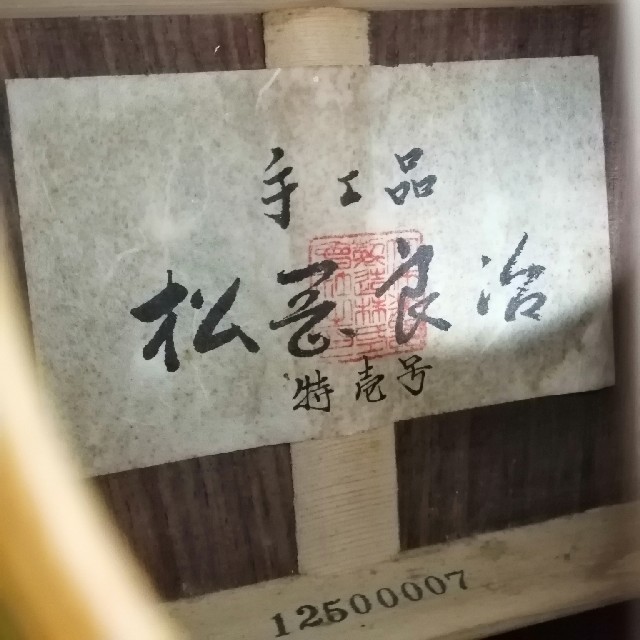 手工品
松岡良治
特壱号
12500007